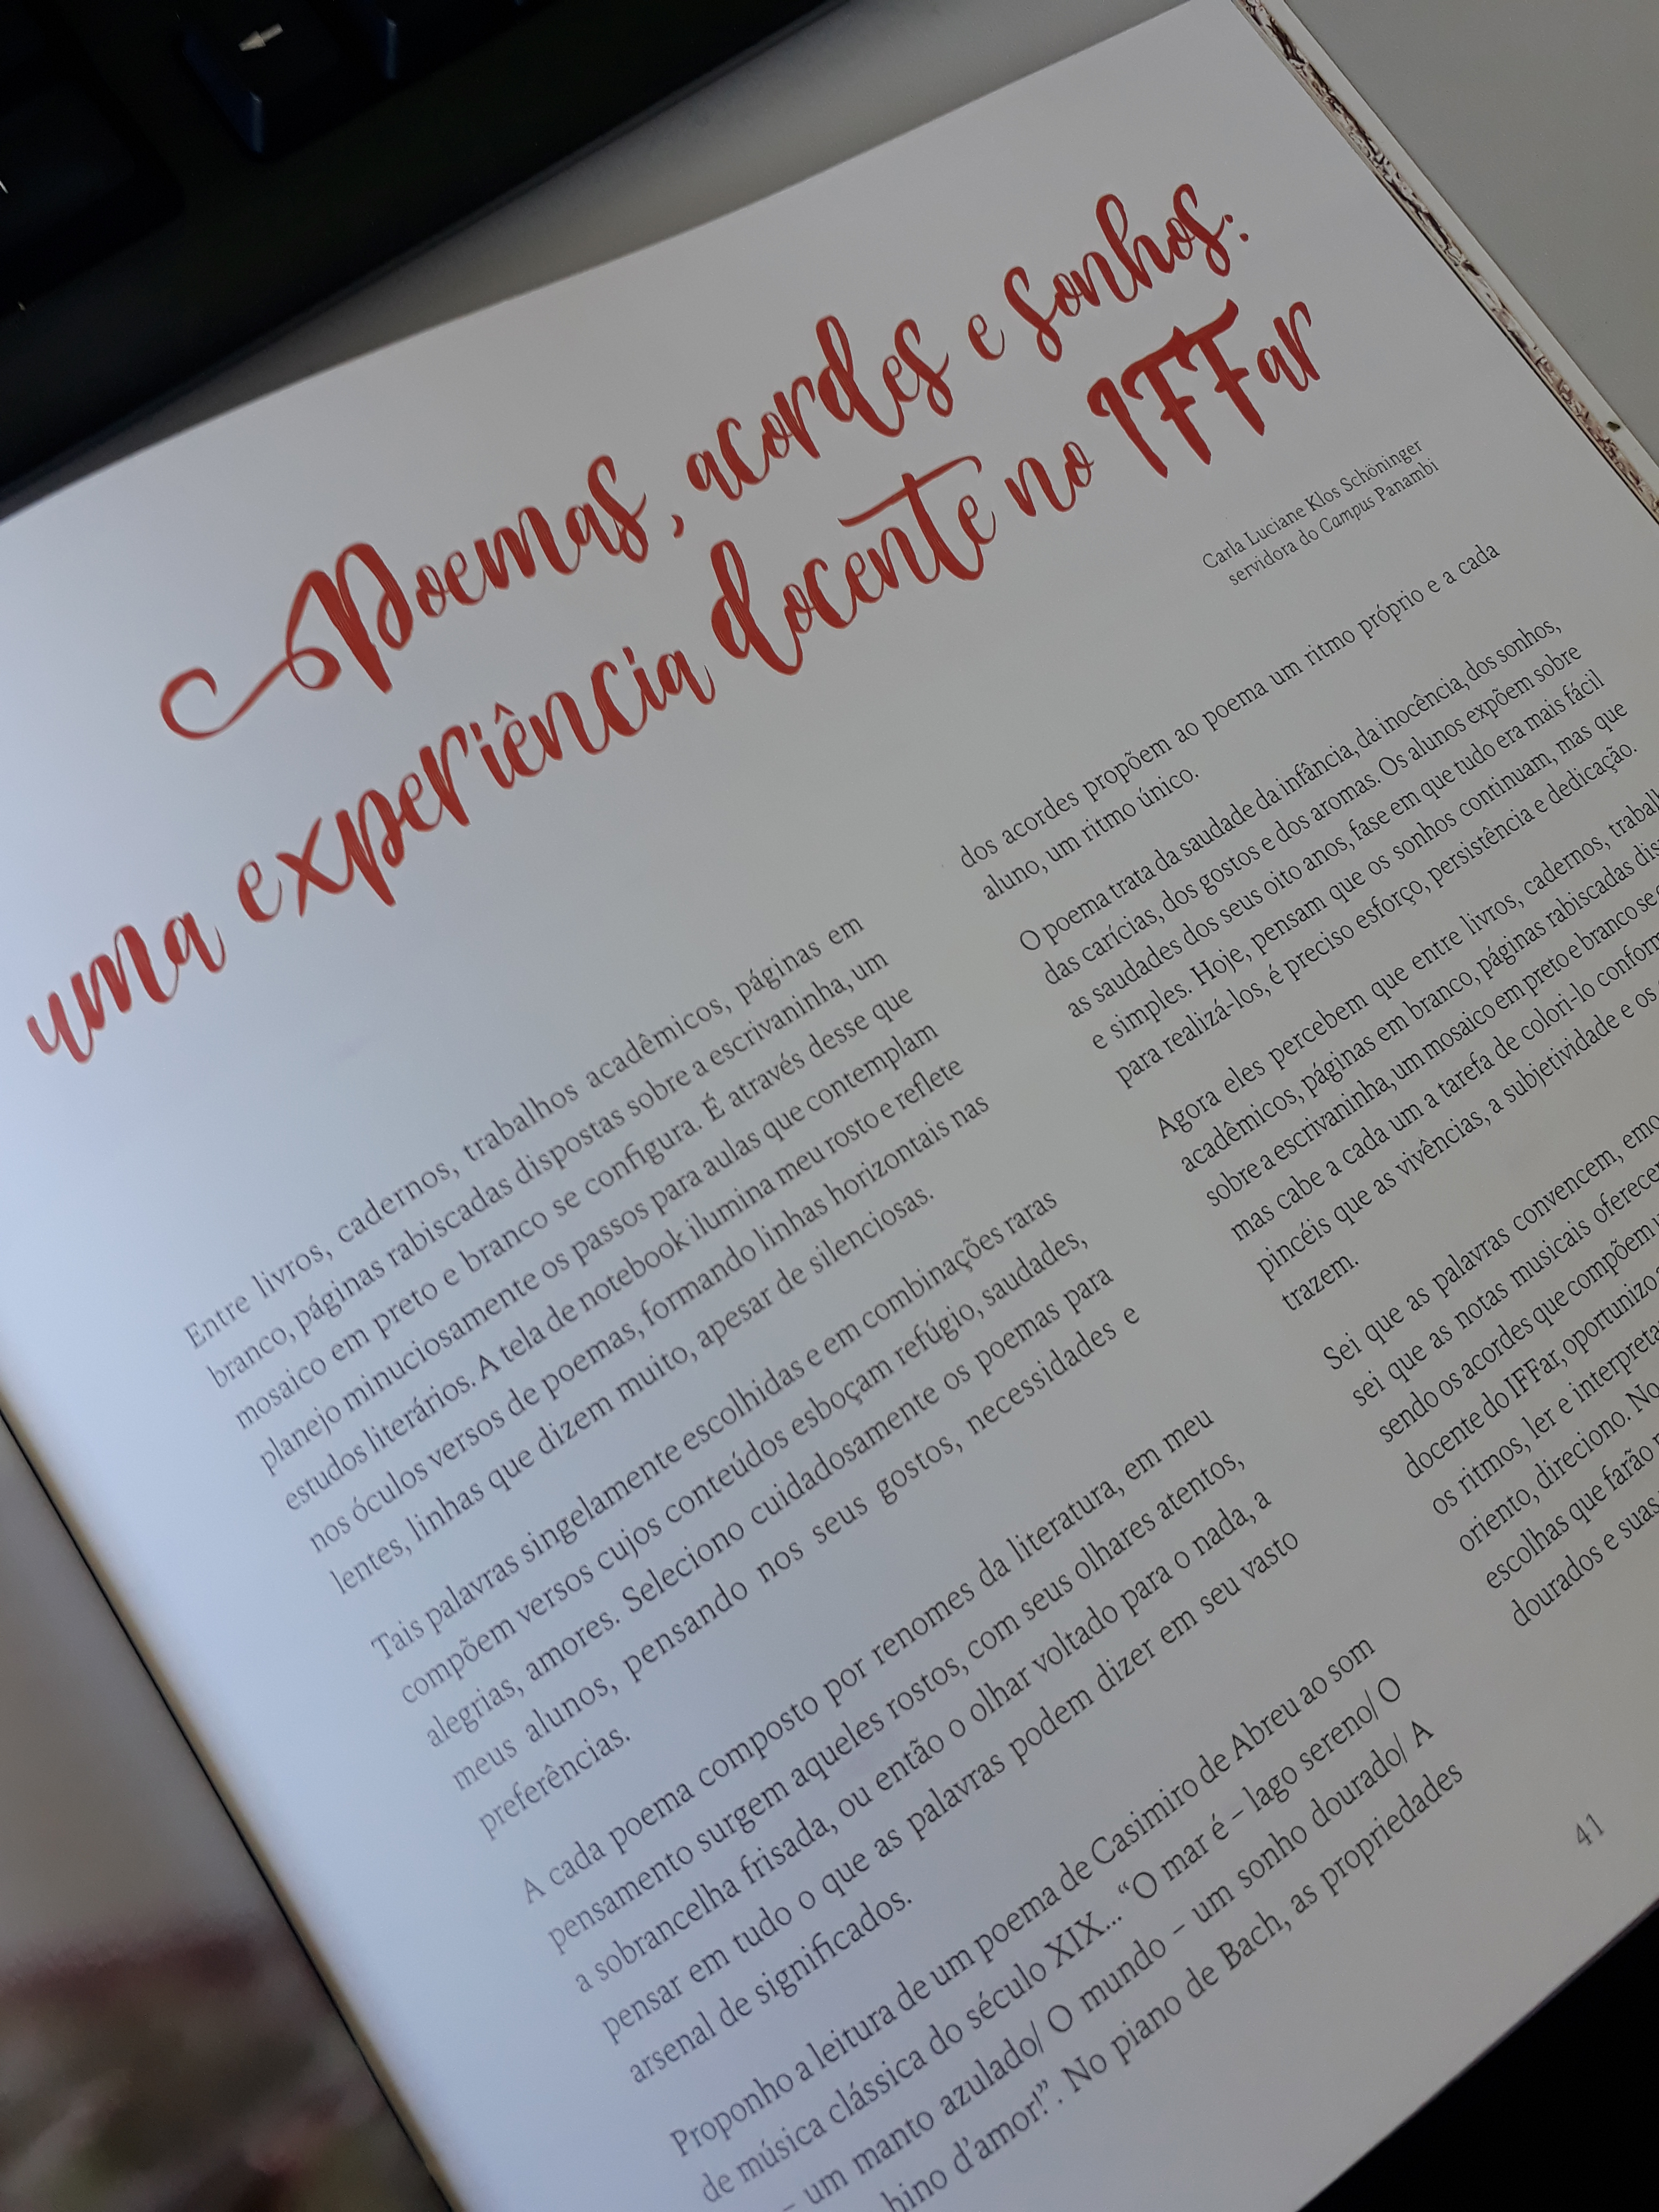 Poemas, acordes e sonhos:
uma experiência docente no IFFar
Carla Luciane Klos Schöninger
servidora do Campus Panambi
Entre livros, cadernos, trabalhos acadêmicos, páginas em
branco, páginas rabiscadas dispostas sobre a escrivaninha, um
mosaico em preto e branco se configura. É através desse que
planejo minuciosamente os passos para aulas que contemplam
estudos literários. A tela de notebook ilumina meu rosto e reflete
nos óculos versos de poemas, formando linhas horizontais nas
lentes, linhas que dizem muito, apesar de silenciosas.
Tais palavras singelamente escolhidas e em combinações raras
compõem versos cujos conteúdos esboçam refúgio, saudades,
alegrias, amores. Seleciono cuidadosamente os poemas para
meus alunos, pensando nos seus gostos, necessidades e
preferências.
A cada poema composto por renomes da literatura, em meu
pensamento surgem aqueles rostos, com seus olhares atentos,
a sobrancelha frisada, ou então o olhar voltado para o nada, a
pensar em tudo o que as palavras podem dizer em seu vasto
arsenal de significados.
Proponho a leitura de um poema de Casimiro de Abreu ao som
de música clássica do século XIX... “O mar é – lago sereno/ O
– um manto azulado/ O mundo – um sonho dourado/ A
hino d’amor!”. No piano de Bach, as propriedades
dos acordes propõem ao poema um ritmo próprio e a cada
aluno, um ritmo único.
O poema trata da saudade da infância, da inocência, dos sonhos,
das carícias, dos gostos e dos aromas. Os alunos expõem sobre
as saudades dos seus oito anos, fase em que tudo era mais fácil
e simples. Hoje, pensam que os sonhos continuam, mas que
para realizá-los, é preciso esforço, persistência e dedicação.
Agora eles percebem que entre livros, cadernos,
acadêmicos, páginas em branco, páginas rabiscadas
sobre a escrivaninha, um mosaico em preto e branco se
mas cabe a cada um a tarefa de colori-lo
pincéis que as vivências, a subjetividade e os
trazem.
Sei que as palavras convencem,
sei que as notas musicais
sendo os acordes que compõem
docente do IFFar, oportunizo
os ritmos, ler e
oriento, direciono.
escolhas que farão
dourados e suas
41